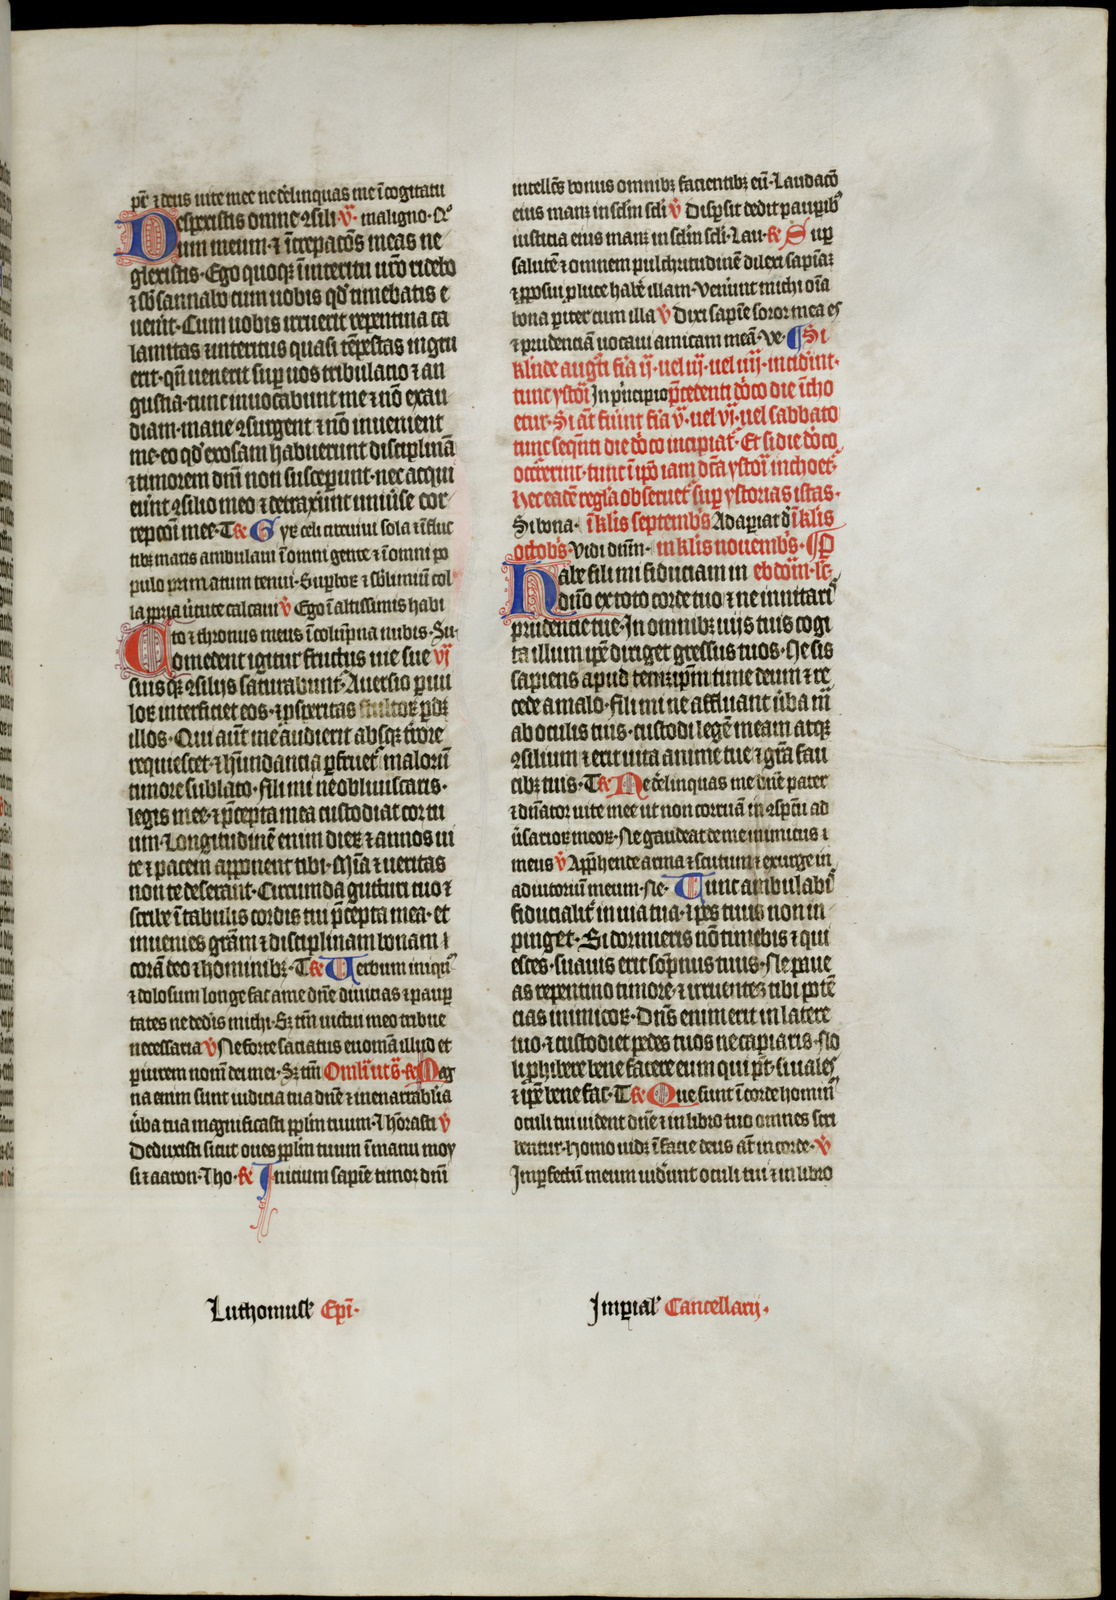 pr̄ ⁊ deus uite mee ne dêlinquas me ī cogitatu
Despexistis omne ꝯsili · v̄ · maligno · Qͦ
um meum · ⁊ īcrepacōēs meas ne
glexistis · Ego quoqꝫ ī interitu ur̄o ridebo
⁊ sb̄sannabo cum uobis qd̄ timebatis e
uenīt · Cum uobis irruerit repentina ca
lamitas ⁊ interitus quasi tēpestas ingru
erit · qn̄ uenerit suꝑ uos tribulacio ⁊ an
gustia · tunc inuocabunt me ⁊ nō exau
diam · mane ꝯsurgent ⁊ nō inuenient
me · eo qd̄ exosam habuerunt disciplinā
⁊ timorem dn̄i non susceꝑunt · nec acqui
eūīt ꝯsilio meo ⁊ detraxūnt uniūse cor
repcōi mee · T ℟ Gyꝝ celi circuiui sola ⁊ ī fluc
tibꝫ maris ambulaui ī omni gente ⁊ ī omni po
pulo primatum tenui · Suꝑboꝝ ⁊ sb̄limiū col
la ꝓpria ūtute calcaui v̄ Ego ī altissimis habi
to ⁊ thronus meus ī colūpna nubis · Su ·
Comedent igitur fructus uie sue vj
suisqꝫ ꝯsilijs saturabunt · Auersio ꝑuu
loꝝ interficiet eos · ⁊ ꝓsꝑitas stultoꝝ ꝑdꝫ
illos · Qui aūt me audierit absqꝫ t̄rore
requiescet · ⁊ hūndancia ꝑfruet̄ maloꝝ
timore sublato · fili mi ne obliuiscaris ·
legis mee · ⁊ p̄cepta mea custodiat cor tu
um · Longitudinē enim dieꝝ ⁊ annos ui
te ⁊ pacem apponent tibi · Mīa ⁊ ueritas
non te deserant · Circumda gutturi tuo ⁊
scribe ī tabulis cordis tui p̄cepta mea · et
inuenies grām ⁊ disciplinam bonam
corā deo ⁊ hominibꝫ · T ℟ Uerbum iniquū
⁊ dolosum longe fac a me dn̄e diuicias ⁊ pauꝑ
tates ne dedis michi · Sꝫ tm̄ uictui meo tribue
necessaria v̄ Ne forte saciatus euomā illud et
ꝑiurem nomē dei mei · Sꝫ tm̄ Om̄lit̄ us̄ · ℟ Mag
na enim sunt iudicia tua dn̄e ⁊ inenarrabīlia
ūba tua magnificasti ꝓplm tuum · ⁊ honasti v̄
Deduxisti sicut oues ꝓplm tuum ī manu moy
si ⁊ aaron · ⁊ ho · ℟ Inicium sapiē timor dn̄i
intellēs bonus omnibꝫ facientibꝫ eū · Laudacō
eius manꝫ in sclm̄ scl̄i v̄ Disꝑsit dedit pauꝑibꝰ
iusticia eius manꝫ in sclm̄ scl̄i · Lau · ℟ Suꝑ
salutē ⁊ omnem pulchritudinē dilexi sapīaꝫ
⁊ ꝓposui ꝓ luce habē illam · Venūnt michi oīa
bona ꝑiter cum illa v̄ Dixi sapiē soror mea es
⁊ prudenciā uocaui amicam meā · Ve · ¶ Si
kl̄nde augꝰti fīa ij · uel iij · uel iiij · incid̄int ·
tunc ystoī In principio p̄cedenti dn̄ico die īcho
etur · Si āt fūint fīa v̄ · uel vj · uel sabbato
tunc seqn̄ti die dn̄ico incipiat̄ · Et si die dn̄ico
occr̄erint · tunc ī ip̄o iam dcā ystoī inchoet̄ ·
Hec eadē regl̄a obseruet̄ suꝑ ystorias istas ·
Si bona · ī kl̄is septembꝰs Adaꝑiat d̄ ī kl̄is
octobꝰs · Vidi dn̄m · in kl̄is nouembꝰs · ¶ P
Habe fili mi fiduciam in ebdom̄ · sc̄
dn̄o ex toto corde tuo ⁊ ne innitarꝭ
prudencie tue · In omnibꝫ uijs tuis cogi
ta illum ip̄e diriget gressus tuos · Ne sis
sapiens apud temetip̄m time deum ⁊ re
cede a malo · fili mi ne affluant ūba m̄
ab oculis tuis · custodi legē meam atqꝫ
ꝯsilium ⁊ erit uita anime tue ⁊ grā fau
cibꝫ tuis · T ℟ Ne dêlinquas me dn̄e pater
⁊ dn̄ator uite mee ut non corruā in ꝯspc̄u ad
ūsarioꝝ meoꝝ · Ne gaudeat de me inimicus
meus v̄ Apꝓhende arma ⁊ scutum ⁊ exurge in
adiutoriū meum · Ne · Tunc ambulabꝭ
fiducialit̄ in uia tua · ⁊ pes tuus non in
pinget · Si dormieris nō timebis ⁊ qui
esces · suauis erit sompnus tuus · Ne paue
as repentino timore · ⁊ irruentes tibi potē
cias inimicoꝝ · Dn̄s enim erit in latere
tuo · ⁊ custodiet pedes tuos ne capiaris · No
li ꝓhibere bene facere eum qui pt̄ · si uales
⁊ ip̄e bene fac · T ℟ Que sunt ī corde hominū
oculi tui uident dn̄e ⁊ in libro tuo omnes scri
bentur · Homo uidꝫ ī facie deus āt in corde · v̄
Imꝑfectū meum uid̄unt oculi tui ⁊ in libro
Luthomusꝉ Epī ·
Imꝑialꝭ Cancellarij ·